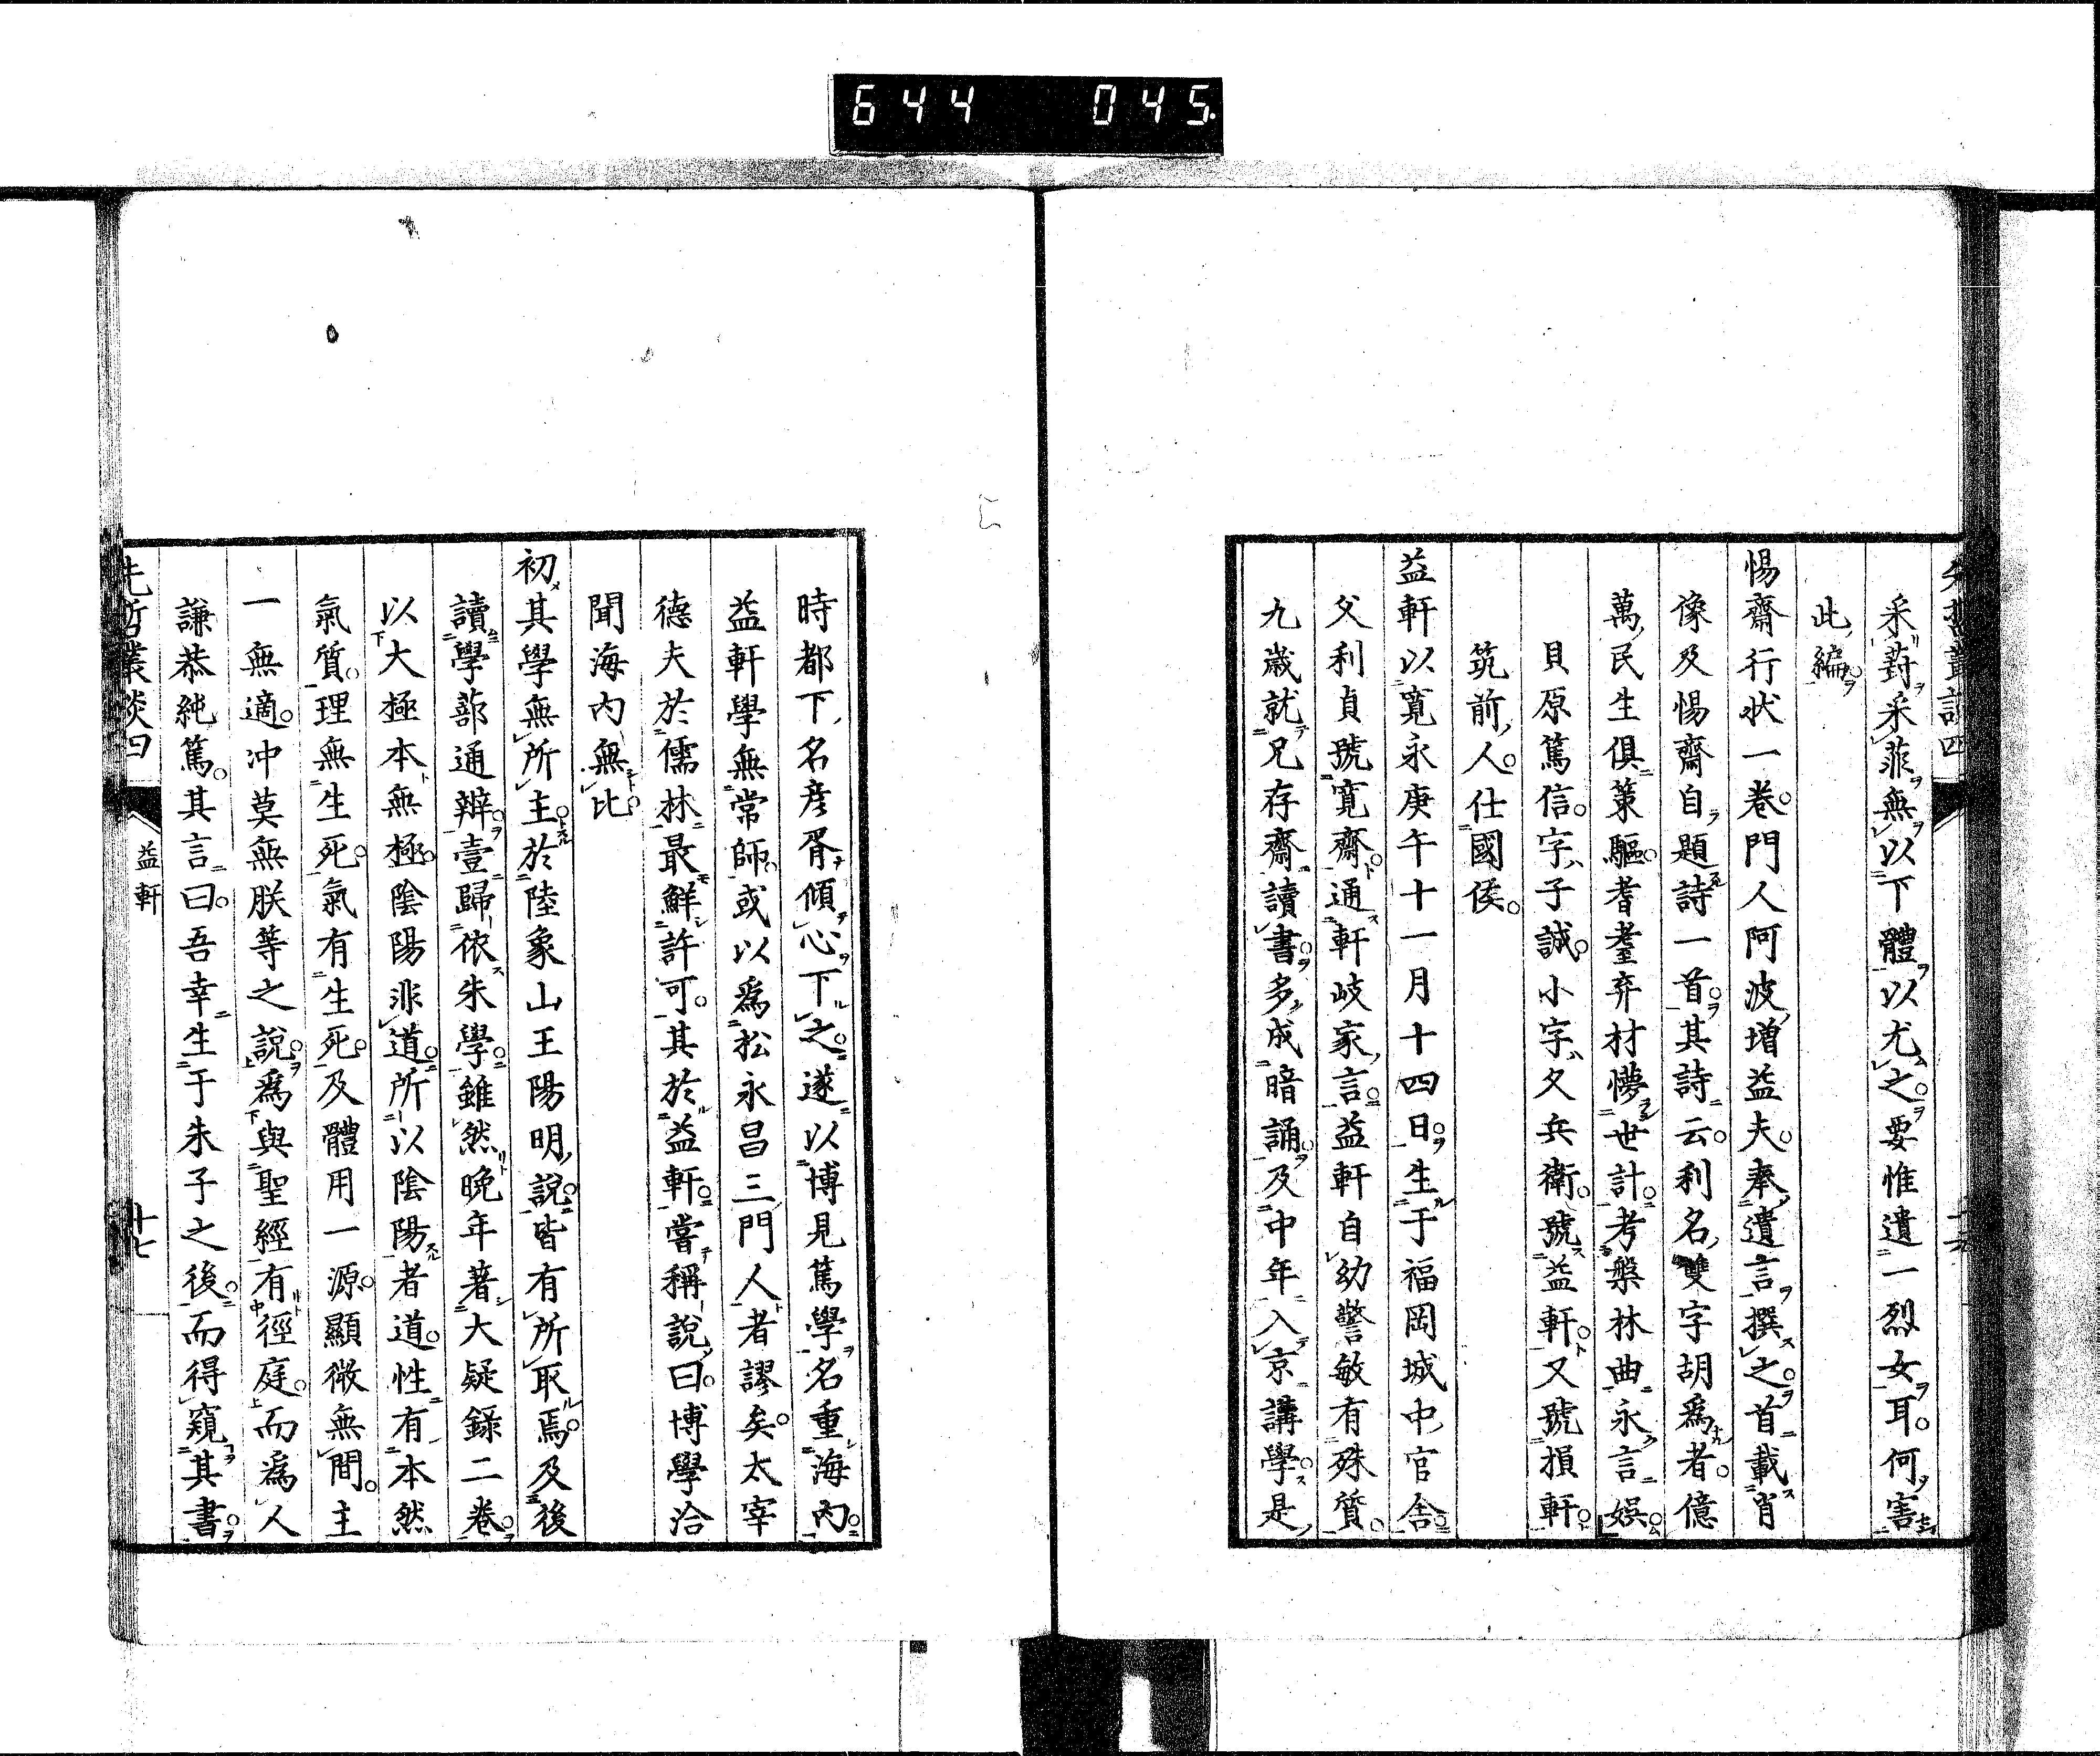 644 045
采葑采菲無以下體以尤之要惟遺一烈女耳何害
此編
惕齋行狀一卷門人阿波增益夫奉遺言撰之首載肖
像及惕齋自題詩一首其詩云利名雙字胡爲者億
萬民生俱策驅耆耋弃材懜世計考槃林曲永言娯
貝原篤信字子誠小字久兵衛號益軒又號損軒
筑前人仕國侯
益軒以寛永庚午十一月十四日生于福岡城中官舎
父利貞號寛齋通軒岐家言益軒自幼警敏有殊質
九歳就兄存齋讀書多成暗誦及中年入京講學是
時都下名彦胥傾心下之遂以博見篤學名重海内
益軒學無常師或以爲松永昌三門人者謬矣太宰
德夫於儒林最鮮許可其於益軒嘗稱說曰博學洽
聞海内無比
初其學無所主於陸象山王陽明說皆有所取焉及後
讀學蔀通辨壹歸依朱學雖然晩年著大疑錄二卷
以大極本無極陰陽非道所以陰陽者道性有本然
氣質理無生死氣有生死及體用一源顯微無間主
一無適冲莫無朕等之說爲與聖經有徑庭而爲人
謙恭純篤其言曰吾幸生于朱子之後而得窺其書
益軒
十七